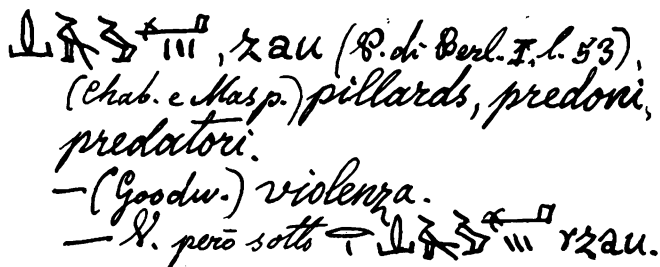 , zau (P. di Berl. I, l. 53),
(Chab. e Masp.) pillards, predoni,
predatori.
— (Goodw.) violenza.
— V. però sotto rzau.